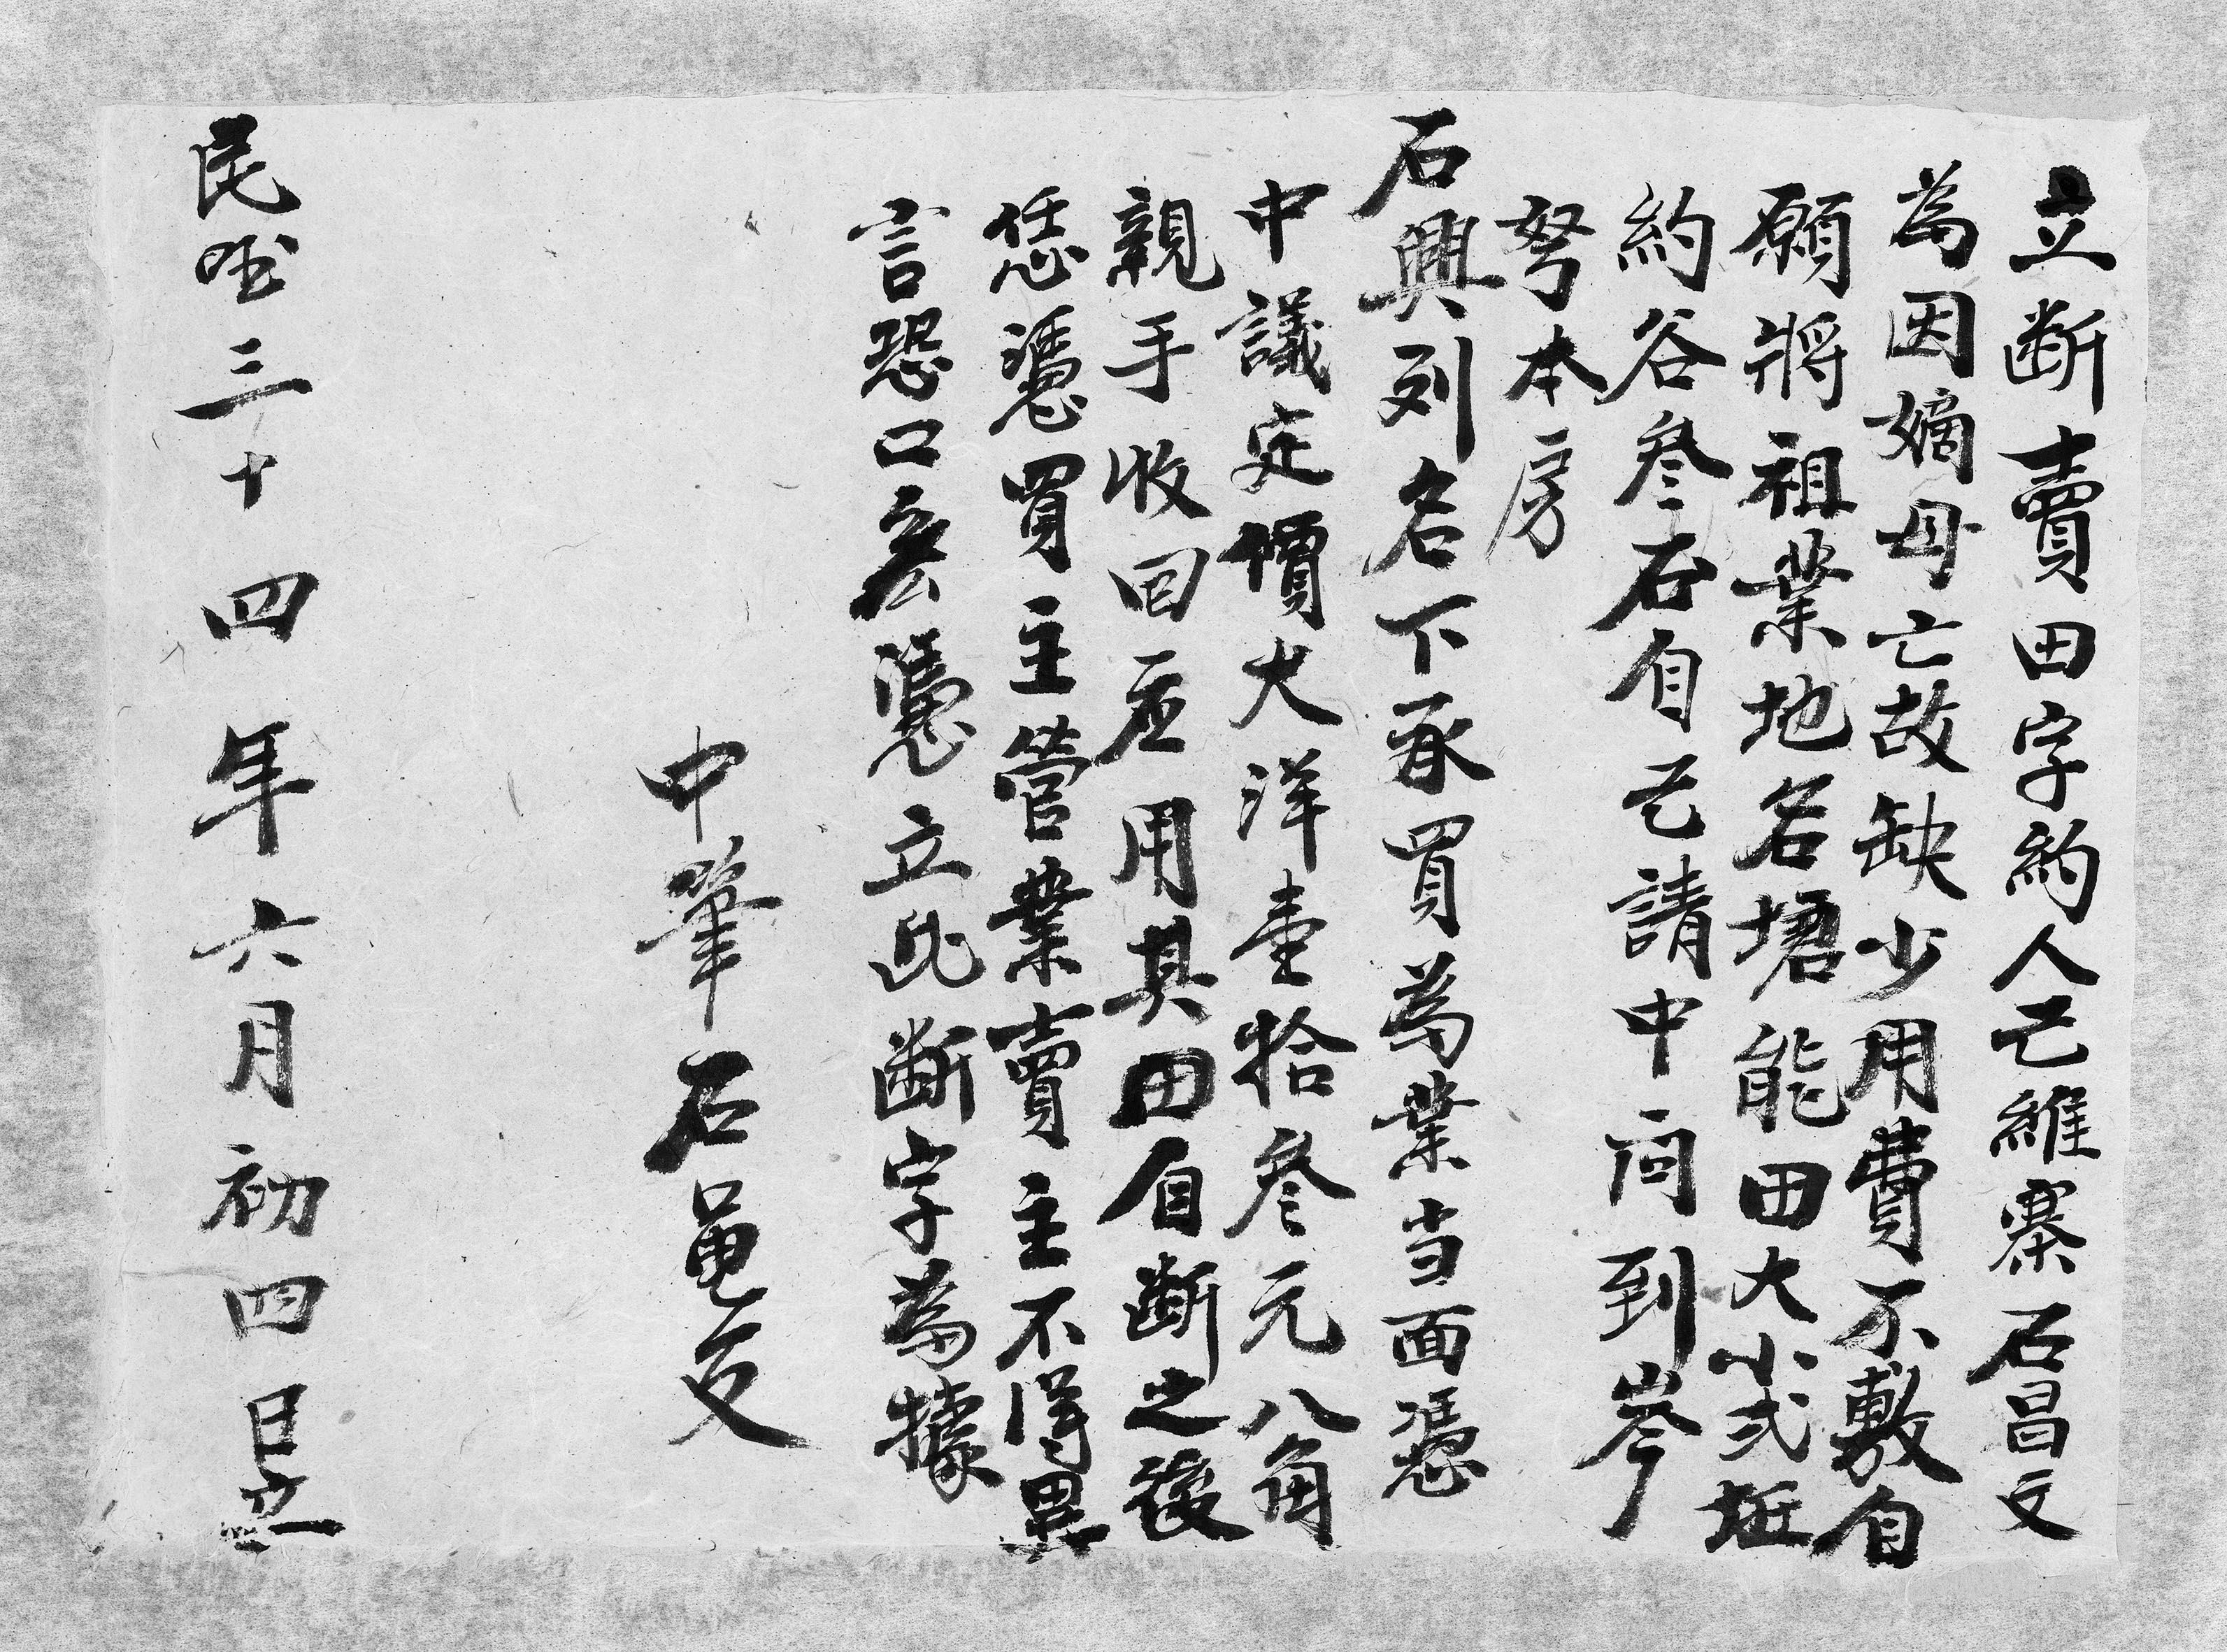 立断賣田字約人已維寨石昌文
為因嫡母亡故缺少用費不敷自
願將祖業地名塘能田大小弍坵
約谷叄石自己請中问到岑
努本房
石興列名下承買為業当面憑
中議定價大洋壹拾叄元八角
親手收回应用其田自断之後
恁憑買主管業賣主不得異
言恐口無憑立此断字為據
中筆 石
民國三十四年六月初四日立